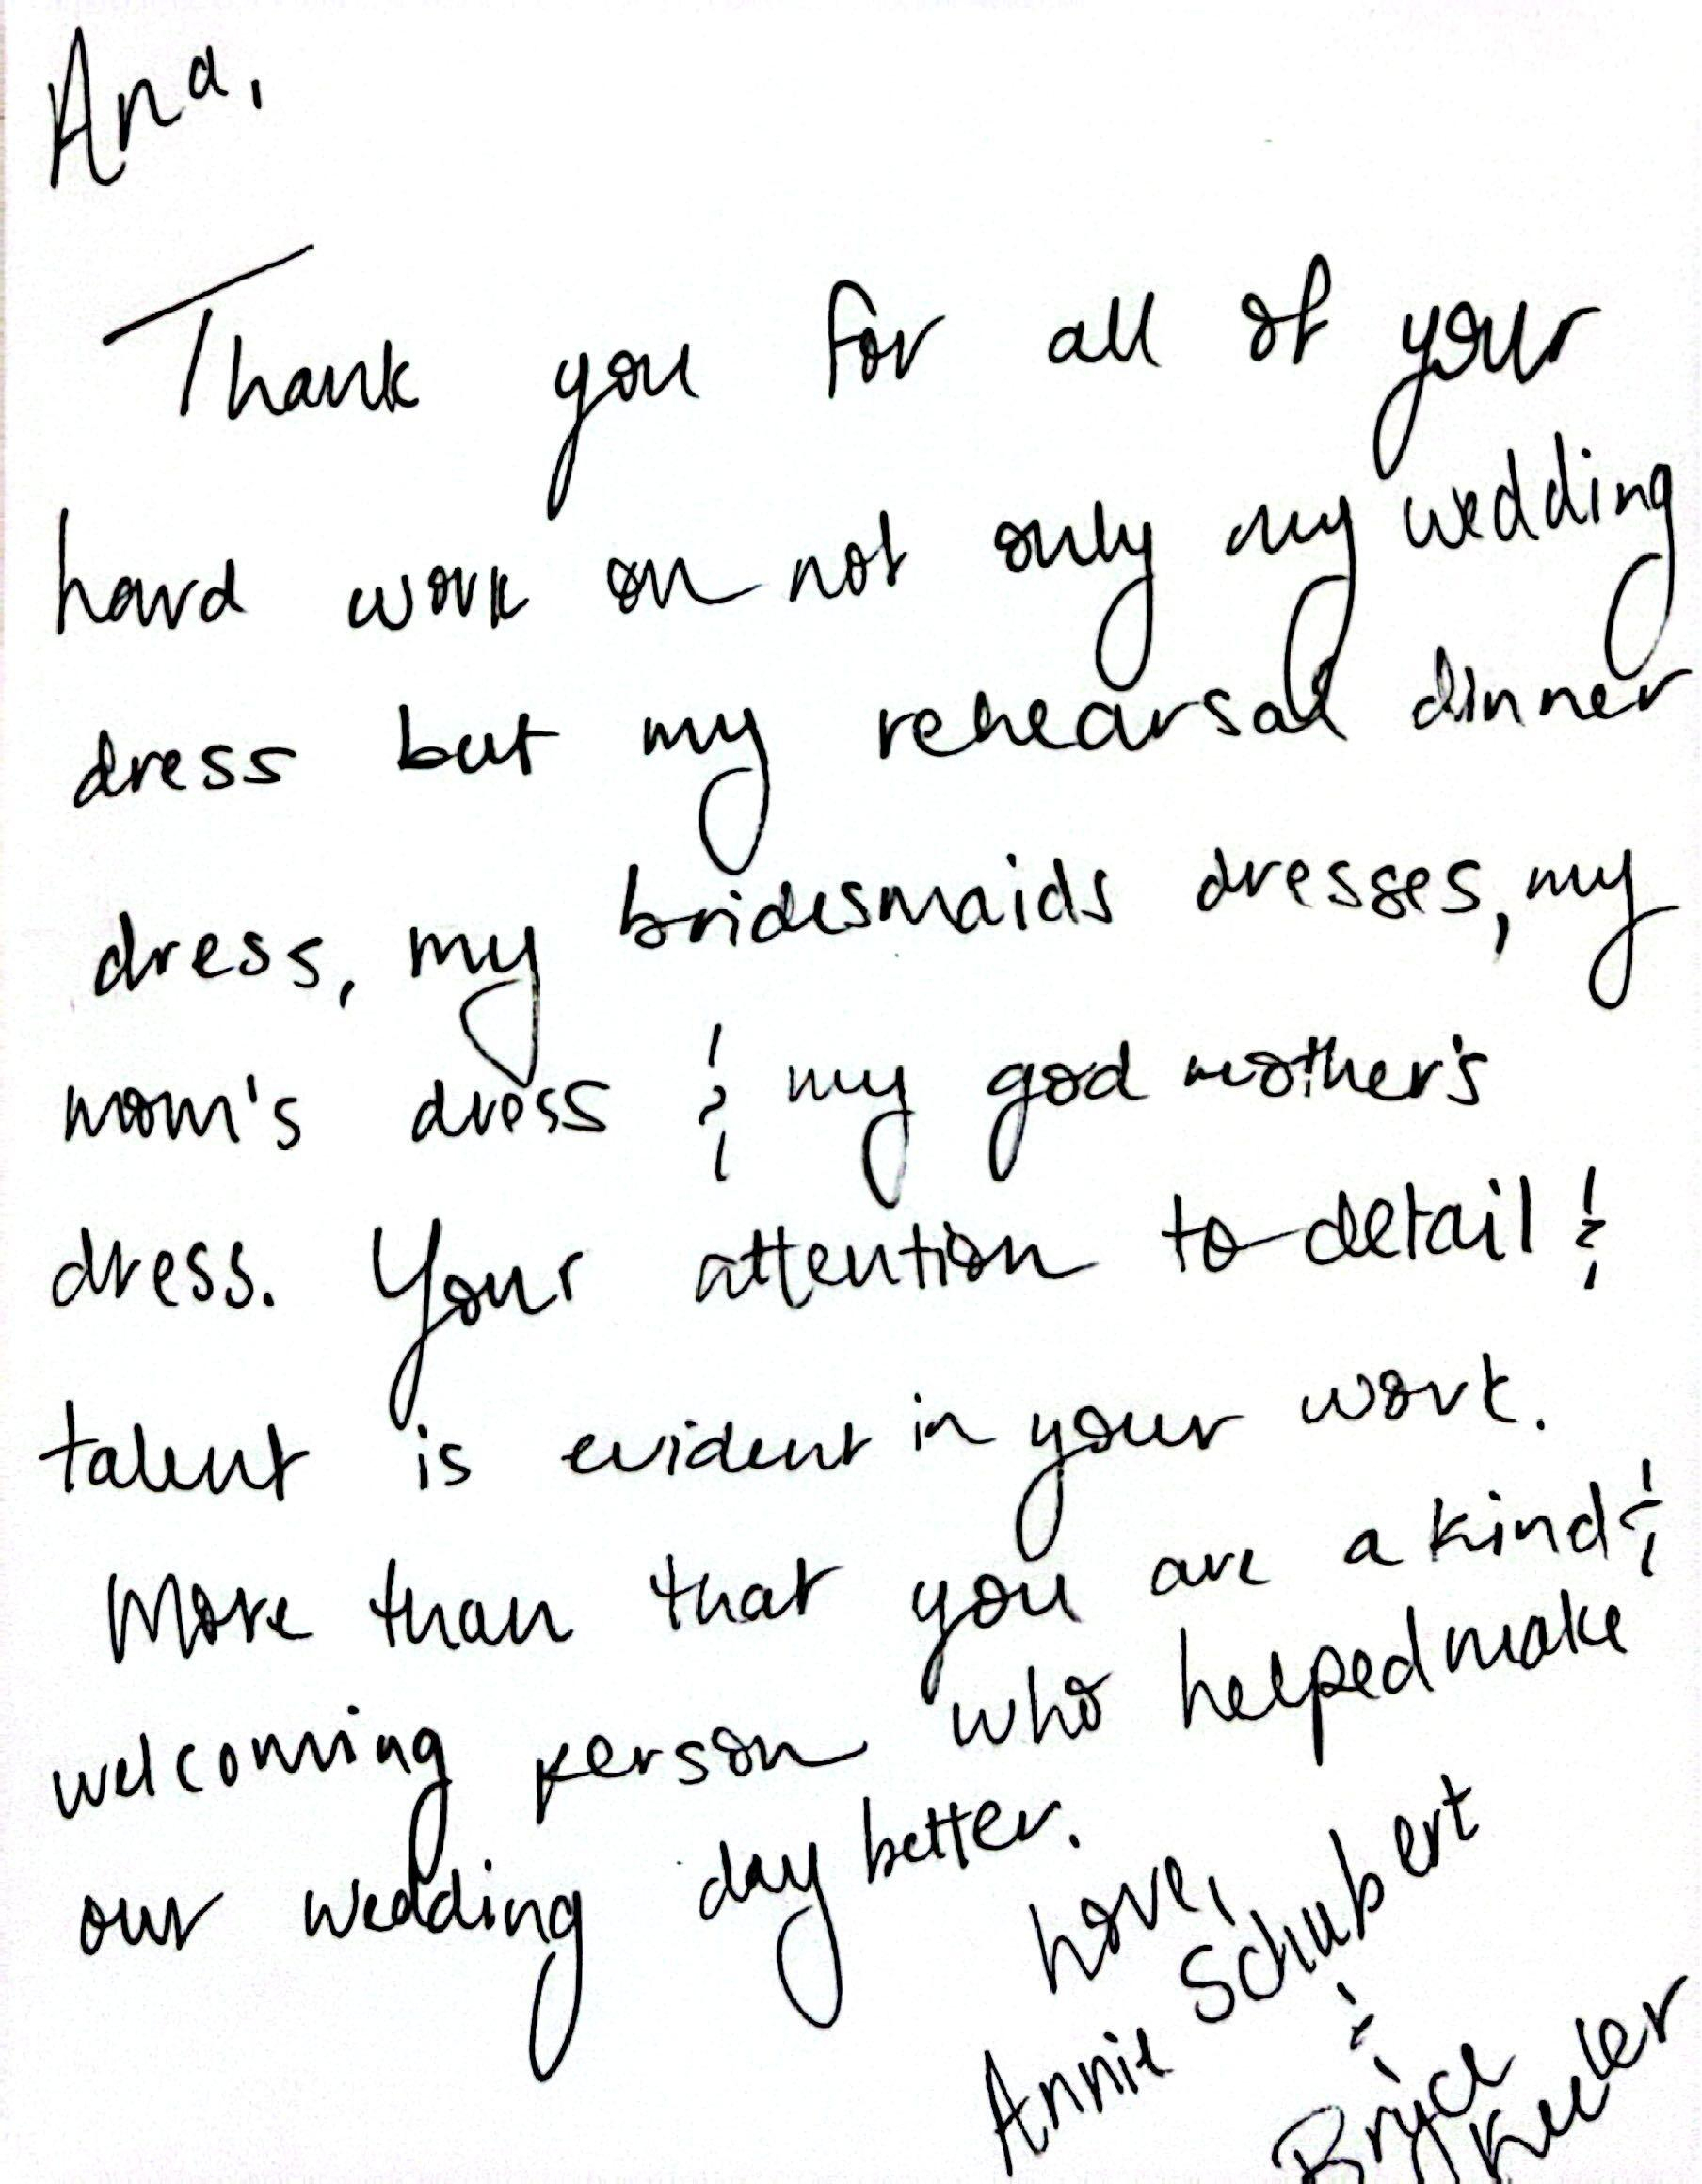 Ana,
Thank you for all of your
hard work on not only my wedding
dress but my rehearsal dinner
dress, my bridesmaids dresses, my
mom's dress & my god mother's
dress. Your attention to detail &
talent is evident in your work.
More than that you are a kind &
welcoming person who helped make
our wedding day better.
Love,
Annie Schubert
&
Bryce